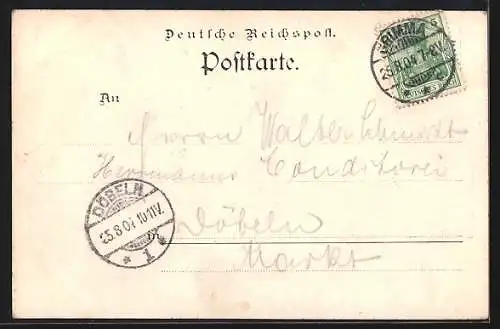 Deutsche Reichspost.
Postkarte.
GRIMMA
25.8.04 7-8V.
5
An
Herrn Walter Schmidt
Herrmanns Conditorei
Döbeln
Markt
DÖBELN
25.8.04 10-11V.
* 1 *